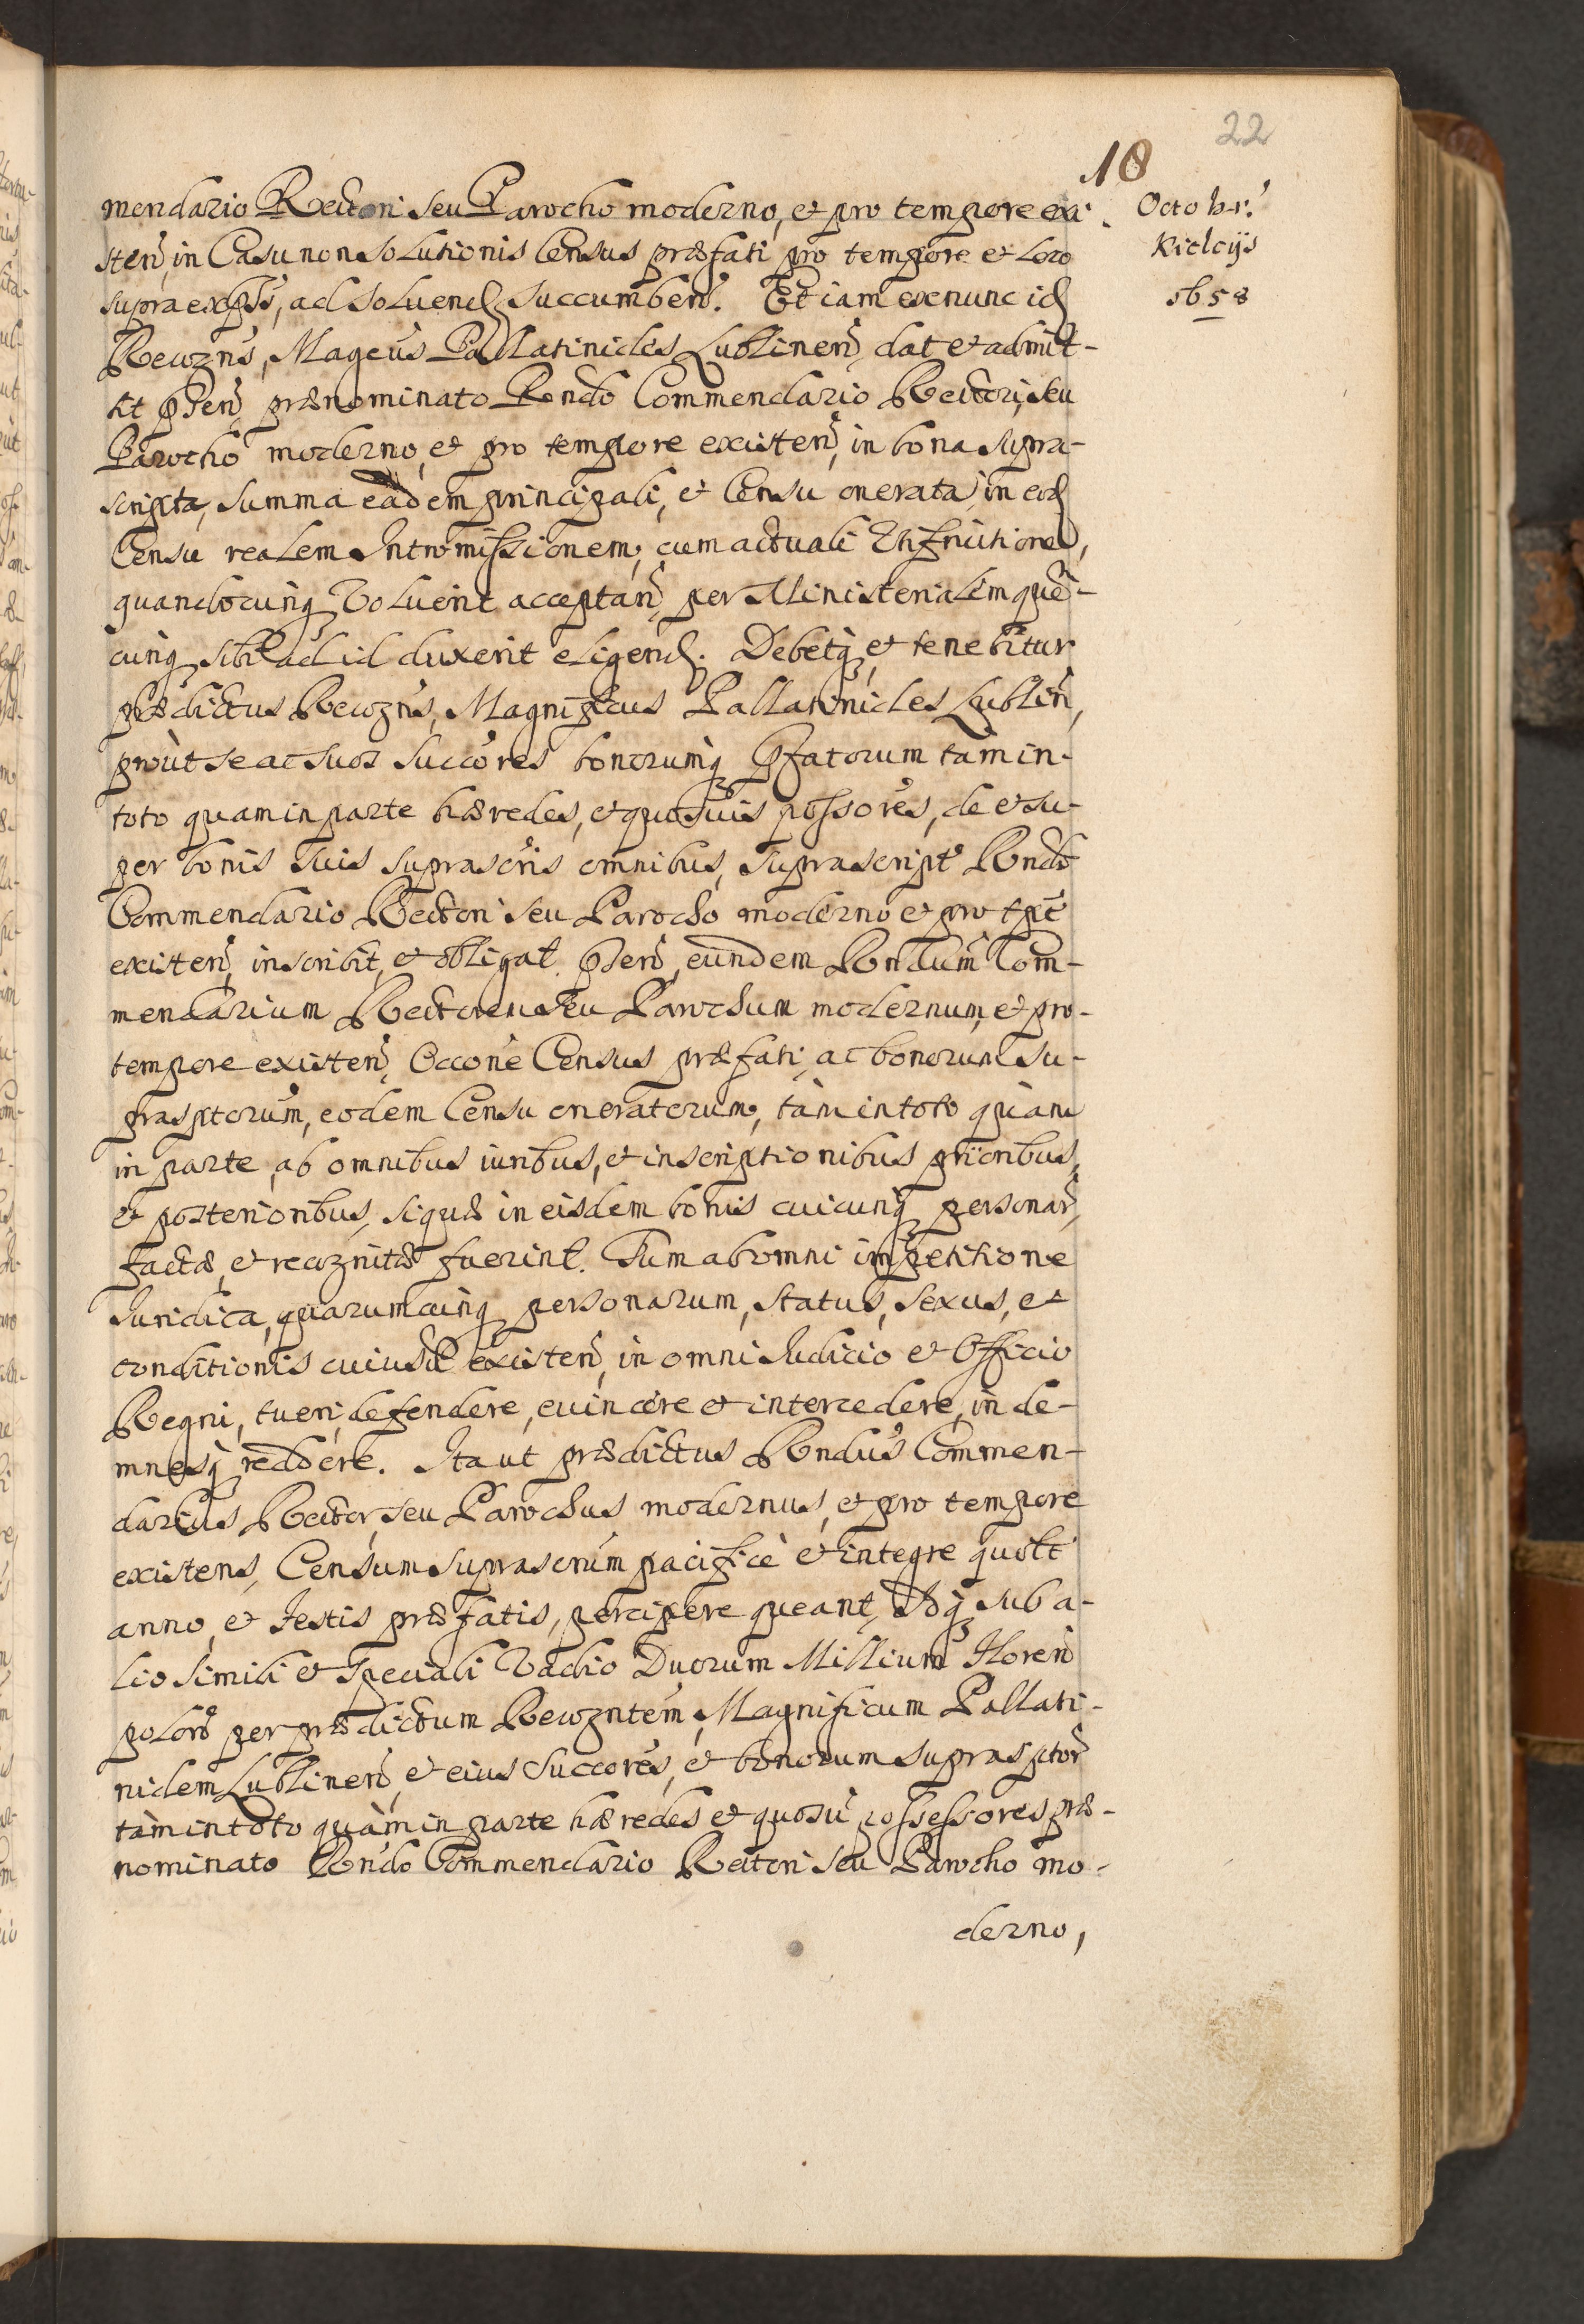 22
18
Octobr.
Kielcijs
5658
mendario Rectori seu Parocho moderno, et pro tempore exi-
sten, in Casu non solutionis Census præfati pro tempore et loco
supra expss, ad soluend succumben. Et iam exnunc id
Recogns, Magcus Pallatinides Lublinen, dat et admit-
tit pren prænominato Rondo Commendario Rectori, seu
Parocho moderno, et pro tempore existen, in bona supra-
scripta, summa eadem principali, et Censu onerata, in eod
Censu realem Intromissionem, cum actuali
quandocunq Voluerit acceptan, per Ministerialem quem-
cunq sibi ad id duxerit eligend. Debetq et tenebitur
prædictus Recogns, Magnificus Pallatinides Lublin,
proùt se ac suos succores bonorumq pfatorum tam in-
toto quam in parte hæredes, et quosuis possores, de et su-
per bonis suis suprascris omnibus, suprascript Rondo
Commendario Rectori seu Parocho moderno et pro tpe
existen, inscribit, et obligat pren, eundem Rondum Com-
mendarium Rectorem seu Parochum modernum, et pro-
tempore existen, Occone Census præfati, ac bonorum su-
prasptorum, eodem Censu oneratorum, tàm in toto quàm
in parte, ab omnibus iuribus, et inscriptionibus prioribus,
et posterioribus, siquæ in eisdem bonis cuicunq personar,
factæ, et recognitæ fuerint. Tum ab omni impetitione
Iuridica, quarumcunq personarum, status, sexus, et
conditionis cuiusuis existen, in omni Iudicio et Officio
Regni, tueri, defendere, euincere et intercedere, in de-
mnesq reddere. Ita ut prædictus Rondus Commen-
darius Rector, seu Parochus modernus, et pro tempore
existens, Censum suprascrum pacificè et integre quolt
anno, et Festis præfatis, percipere queant, Idq sub a-
lio simili et speciali Vadio Duorum Millium Floren
polon per prædictum Recogntem, Magnificum Pallati-
nidem Lublinen, et eius succores, et bonorum suprasptor
tàm in toto quàm in parte hæredes et quosu possessores præ-
nominato Rondo Commendario Rectori seu Parocho mo-
derno,